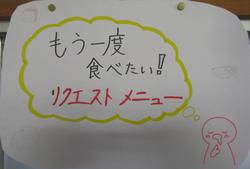 もう一度
食べたい!
リクエスト メニュー